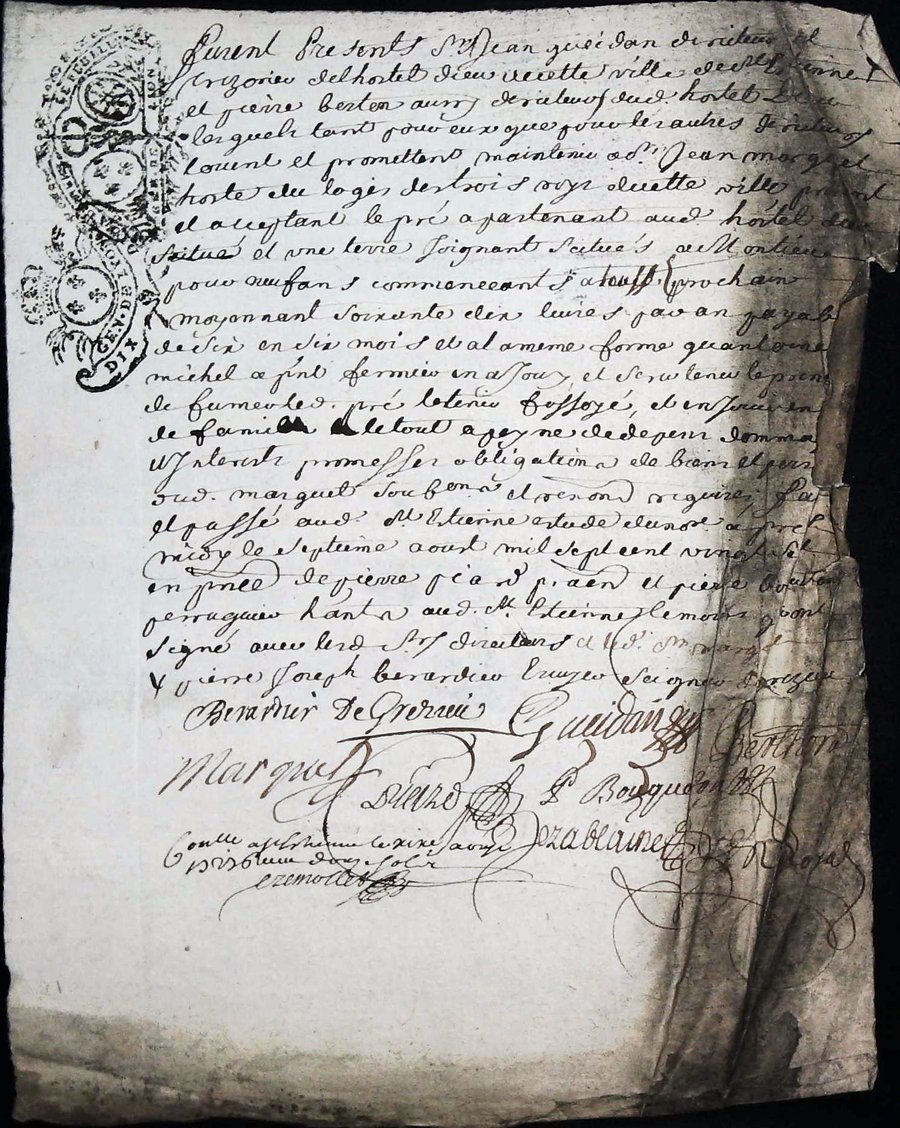 GEN. DE LYON
DIX
furent Presents Srs Jean gueidan directeur et
trezorier delhostel dieu decette ville de St Etienne
et pierre berton aussy directeur dud. hostel Dieu
lesquels tant pour eux que pour les autres directeurs
louent et promettent maintenir a Sr Jean marquet
hoste du logis des trois roys decette ville present
et acceptant le pré apartenant aud hostel dieu
situé et une terre joignant situés a Montieu
pour neuf ans commenceants a toussts prochain
moyennant soixante dix livres par an payable
de six en six mois et a la meme forme quantoine
michel a pnt fermier en a Jouy, et sera tenu le prene
de fumer led. pré le tenir fossoyé, et en Jouir en
de famille le tout a peyne de depens domma
Interests promesses obligations de biens et pers
dud. marquet soubsns et renons requises, fait
et passé aud. St Etienne estude du nore a pres
midy le septieme aoust mil sept cent vingt six
en pnce de pierre picard praen et pierre
perruquier hants aud. St Etienne temoins qont
signé avec lesd. Srs directeurs et led. Sr marqt
& pierre Joseph berardier Ecuyer Seigneur de Grezieu
Berardier De Grezieu Gueidan Berthon
Marquet
Picard P Bouquet
Ezablaine
Conlle a St Etienne le aoust
1726 douze sols